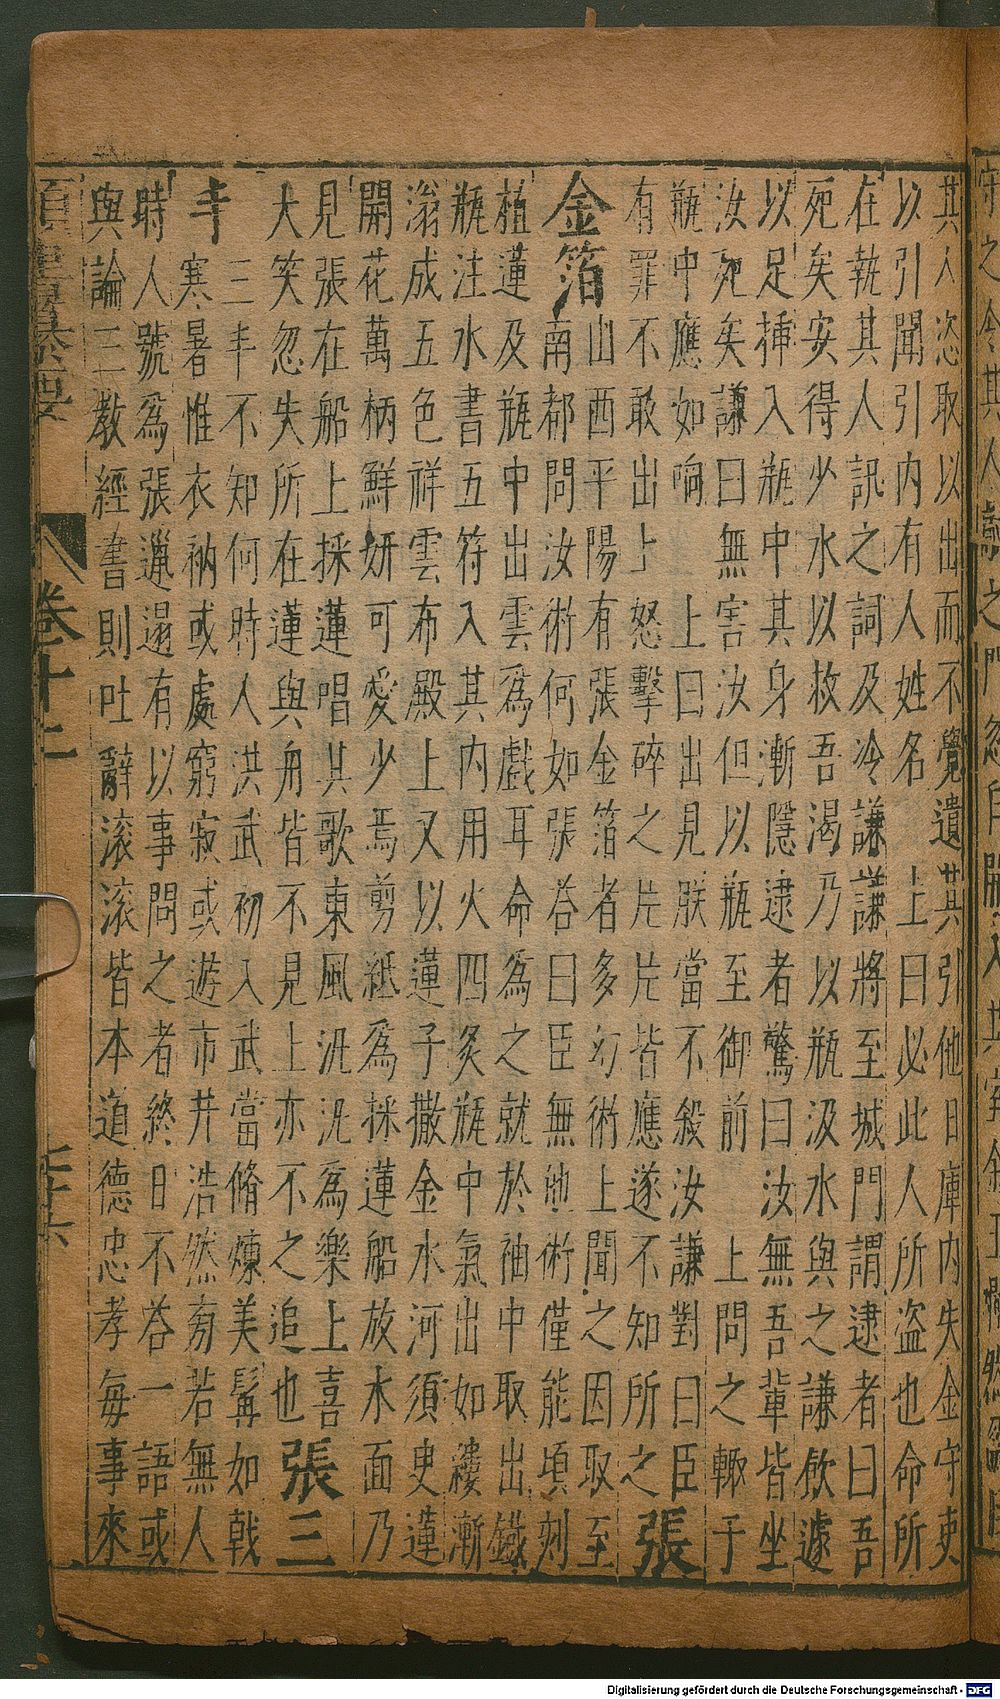 其人恣取以出而不覺遺其引他日庫内失金守吏
以引聞引内有人姓名　上曰必此人所盗也命所
在執其人訊之詞及冷謙謙將至城門謂逮者曰吾
死矣安得少水以救吾渴乃以瓶汲水與之謙飲遽
以足揷入瓶中其身漸隱逮者驚曰汝無吾輩皆坐
汝死矣謙曰無害汝但以瓶至御前　上問之輙于
瓶中應如响　上曰出見朕當不殺汝謙對曰臣
有罪不敢出上怒擊碎之片片皆應遂不知所之　張
金箔　山西平陽有張金箔者多幻術上聞之因取至
南都問汝術何如張荅曰臣無他術僅能頃刻
植蓮及瓶中出雲爲戲耳命爲之就於袖中取出鐵
瓶注水書五符入其内用火四炙瓶中氣出如縷漸
滃成五色祥雲布殿上又以蓮子撒金水河須臾蓮
開花萬柄鮮妍可愛少焉剪紙爲採蓮船放水面乃
見張在船上採蓮唱其歌東風汎汎爲樂上喜
大笑忽失所在蓮與舟皆不見上亦不之追也　張三
丰　三丰不知何時人洪武初入武當脩煉美髯如戟
寒暑惟衣衲或處窮寂或遊市井浩然旁若無人
時人號爲張邋遢有以事問之者終日不荅一語或
與論三教經書則吐辭滚滚皆本道德忠孝每事來
卷十二
Digitalisierung gefördert durch die Deutsche Forschungsgemeinschaft - DFG